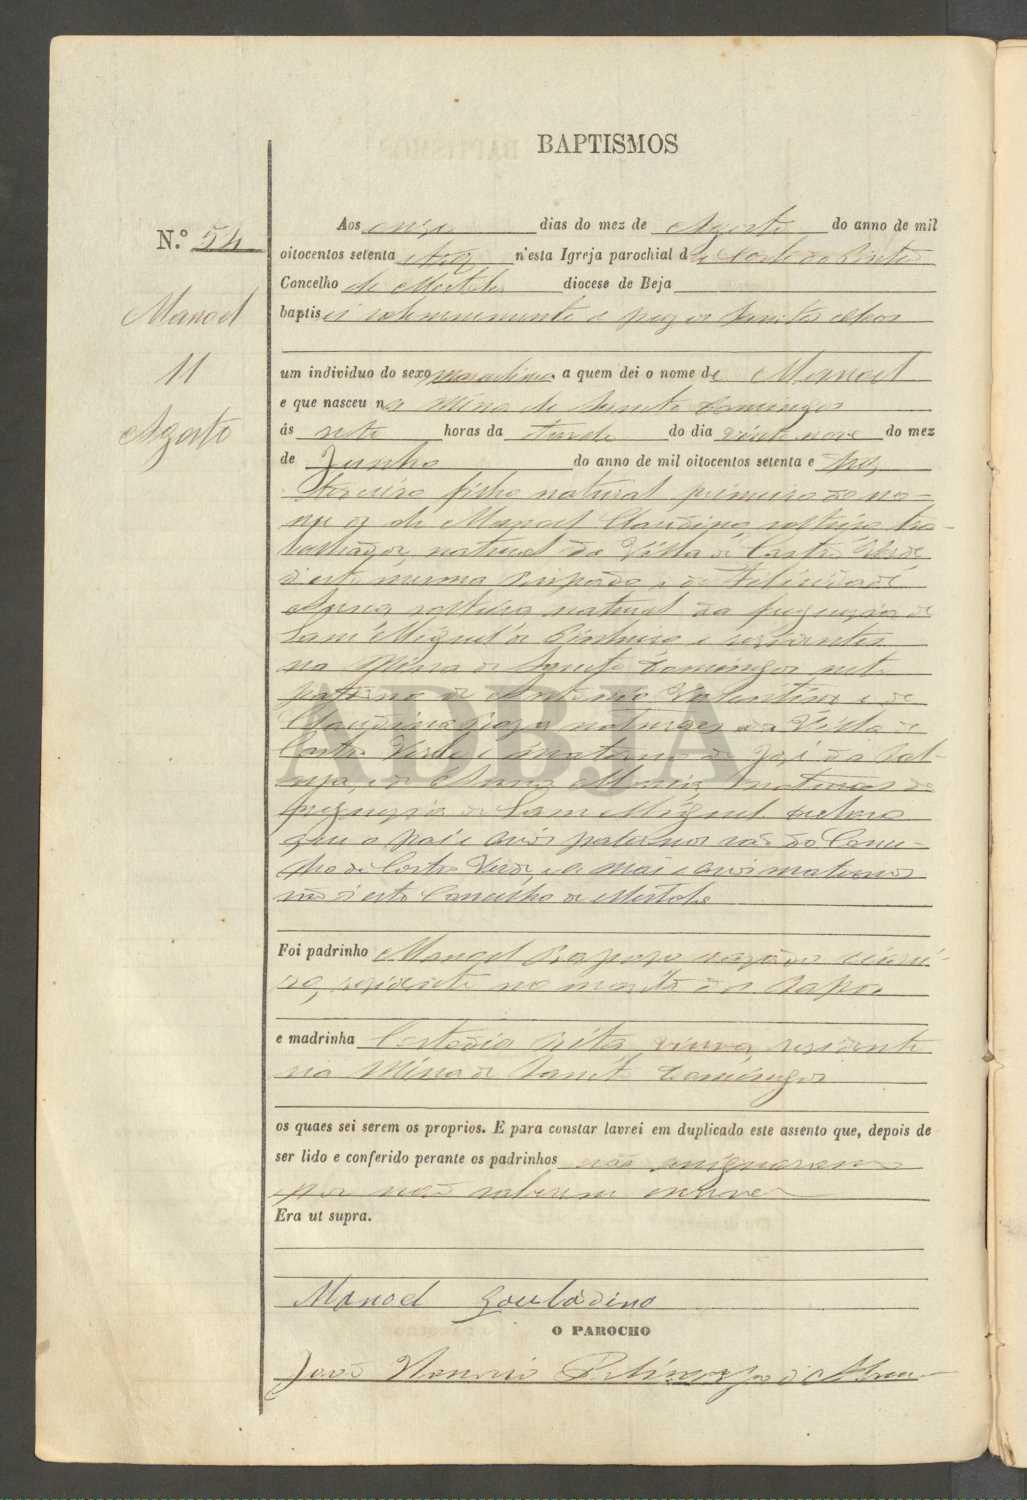 BAPTISMOS
N.º 54
Manoel
11
Agosto
Aos onze dias do mez de Agosto do anno de mil
oitocentos setenta e trez n'esta Igreja parochial de Corte do Pinto
Concelho de Mertola diocese de Beja
baptisei solemnemente e puz os Santos oleos
um individuo do sexo masculino a quem dei o nome de Manoel
e que nasceu na Mina de Sam Domingos
ás sete horas da tarde do dia vinte nove do mez
de Junho do anno de mil oitocentos setenta e trez
terceiro filho natural primeiro do no-
me de Manoel Claudino solteiro tra-
balhador, natural da Villa de Castro Verde
d'este mesmo Bispado, e de Felicidade
Anna solteira natural da freguezia de
Sam Miguel do Pinheiro e rezidentes
na Mina de Domingos neto
paterno de Antonio Valentim e de
Claudina naturaes da Villa de
Castro Verde e materno de José da Pal-
ma, e de Anna Maria naturaes da
freguezia de Sam Miguel declaro
que o pai e avós paternos são do Conce-
lho de Castro Verde, e a mãi e avós maternos
são d'este Concelho de Mertola
Foi padrinho Manoel Raposo cazado
rezidente no monte dos Sapos
e madrinha Custodia Rita viuva, rezidente
na Mina de Domingos
os quaes sei serem os proprios. E para constar lavrei em duplicado este assento que, depois de
ser lido e conferido perante os padrinhos não assignaram
por não saberem escrever
Era ut supra.
Manoel
O PAROCHO
João
ADBJA